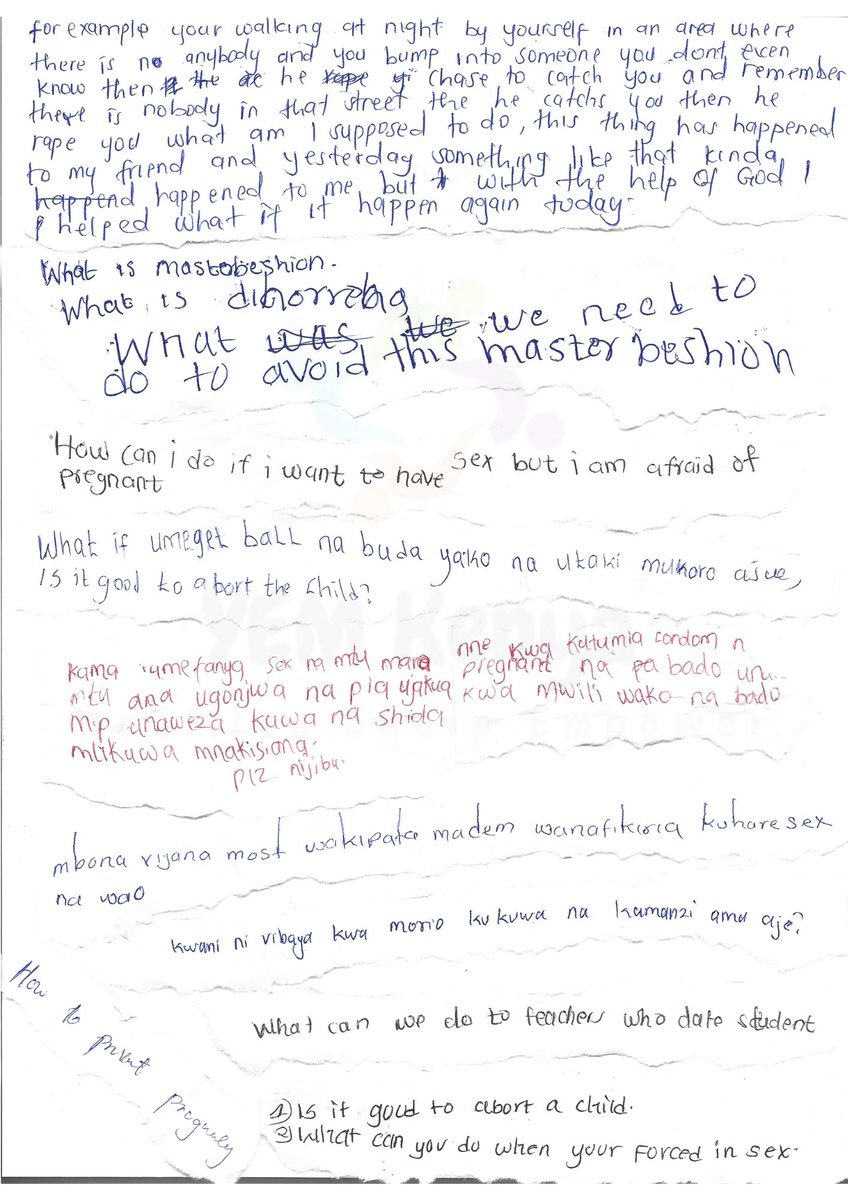 for example your walking at night by yourself in an area where
there is no anybody and you bump into someone you dont even
know then he chase to catch you and remember
there is nobody in that street the he catchs you then he
rape you what am I supposed to do, this thing has happened
to my friend and yesterday something like that kinda
happend happened to me but with the help of God I
helped what if it happen again today.
What is mastobeshion.
What is dihorreha
What was we we need to
do to avoid this master beshion
How can i do if i want to have sex but i am afraid of
pregnant
What if umeget ball na buda yako na utaki mukoro ajue,
Is it good to abort the child?
kama umefanya sex na mtu mara nne kwa kutumia condom n
pregnant na pa bado unu...
mtu ana ugonjwa na pia yakua kwa mwili wako na bado
m.p unaweza kuwa na shida
mlikuwa mnakisiana.
plz nijibu.
mbona vijana most wakipata madem wanafikiria kuhave sex
na wao
kwani ni vibaya kwa morio kukuwa na kamanzi ama aje?
How to prevent pregnancy
What can we do to teachers who date student
1) Is it good to abort a child.
2) What can you do when your forced in sex.
YEM Kenya
Equip Empower